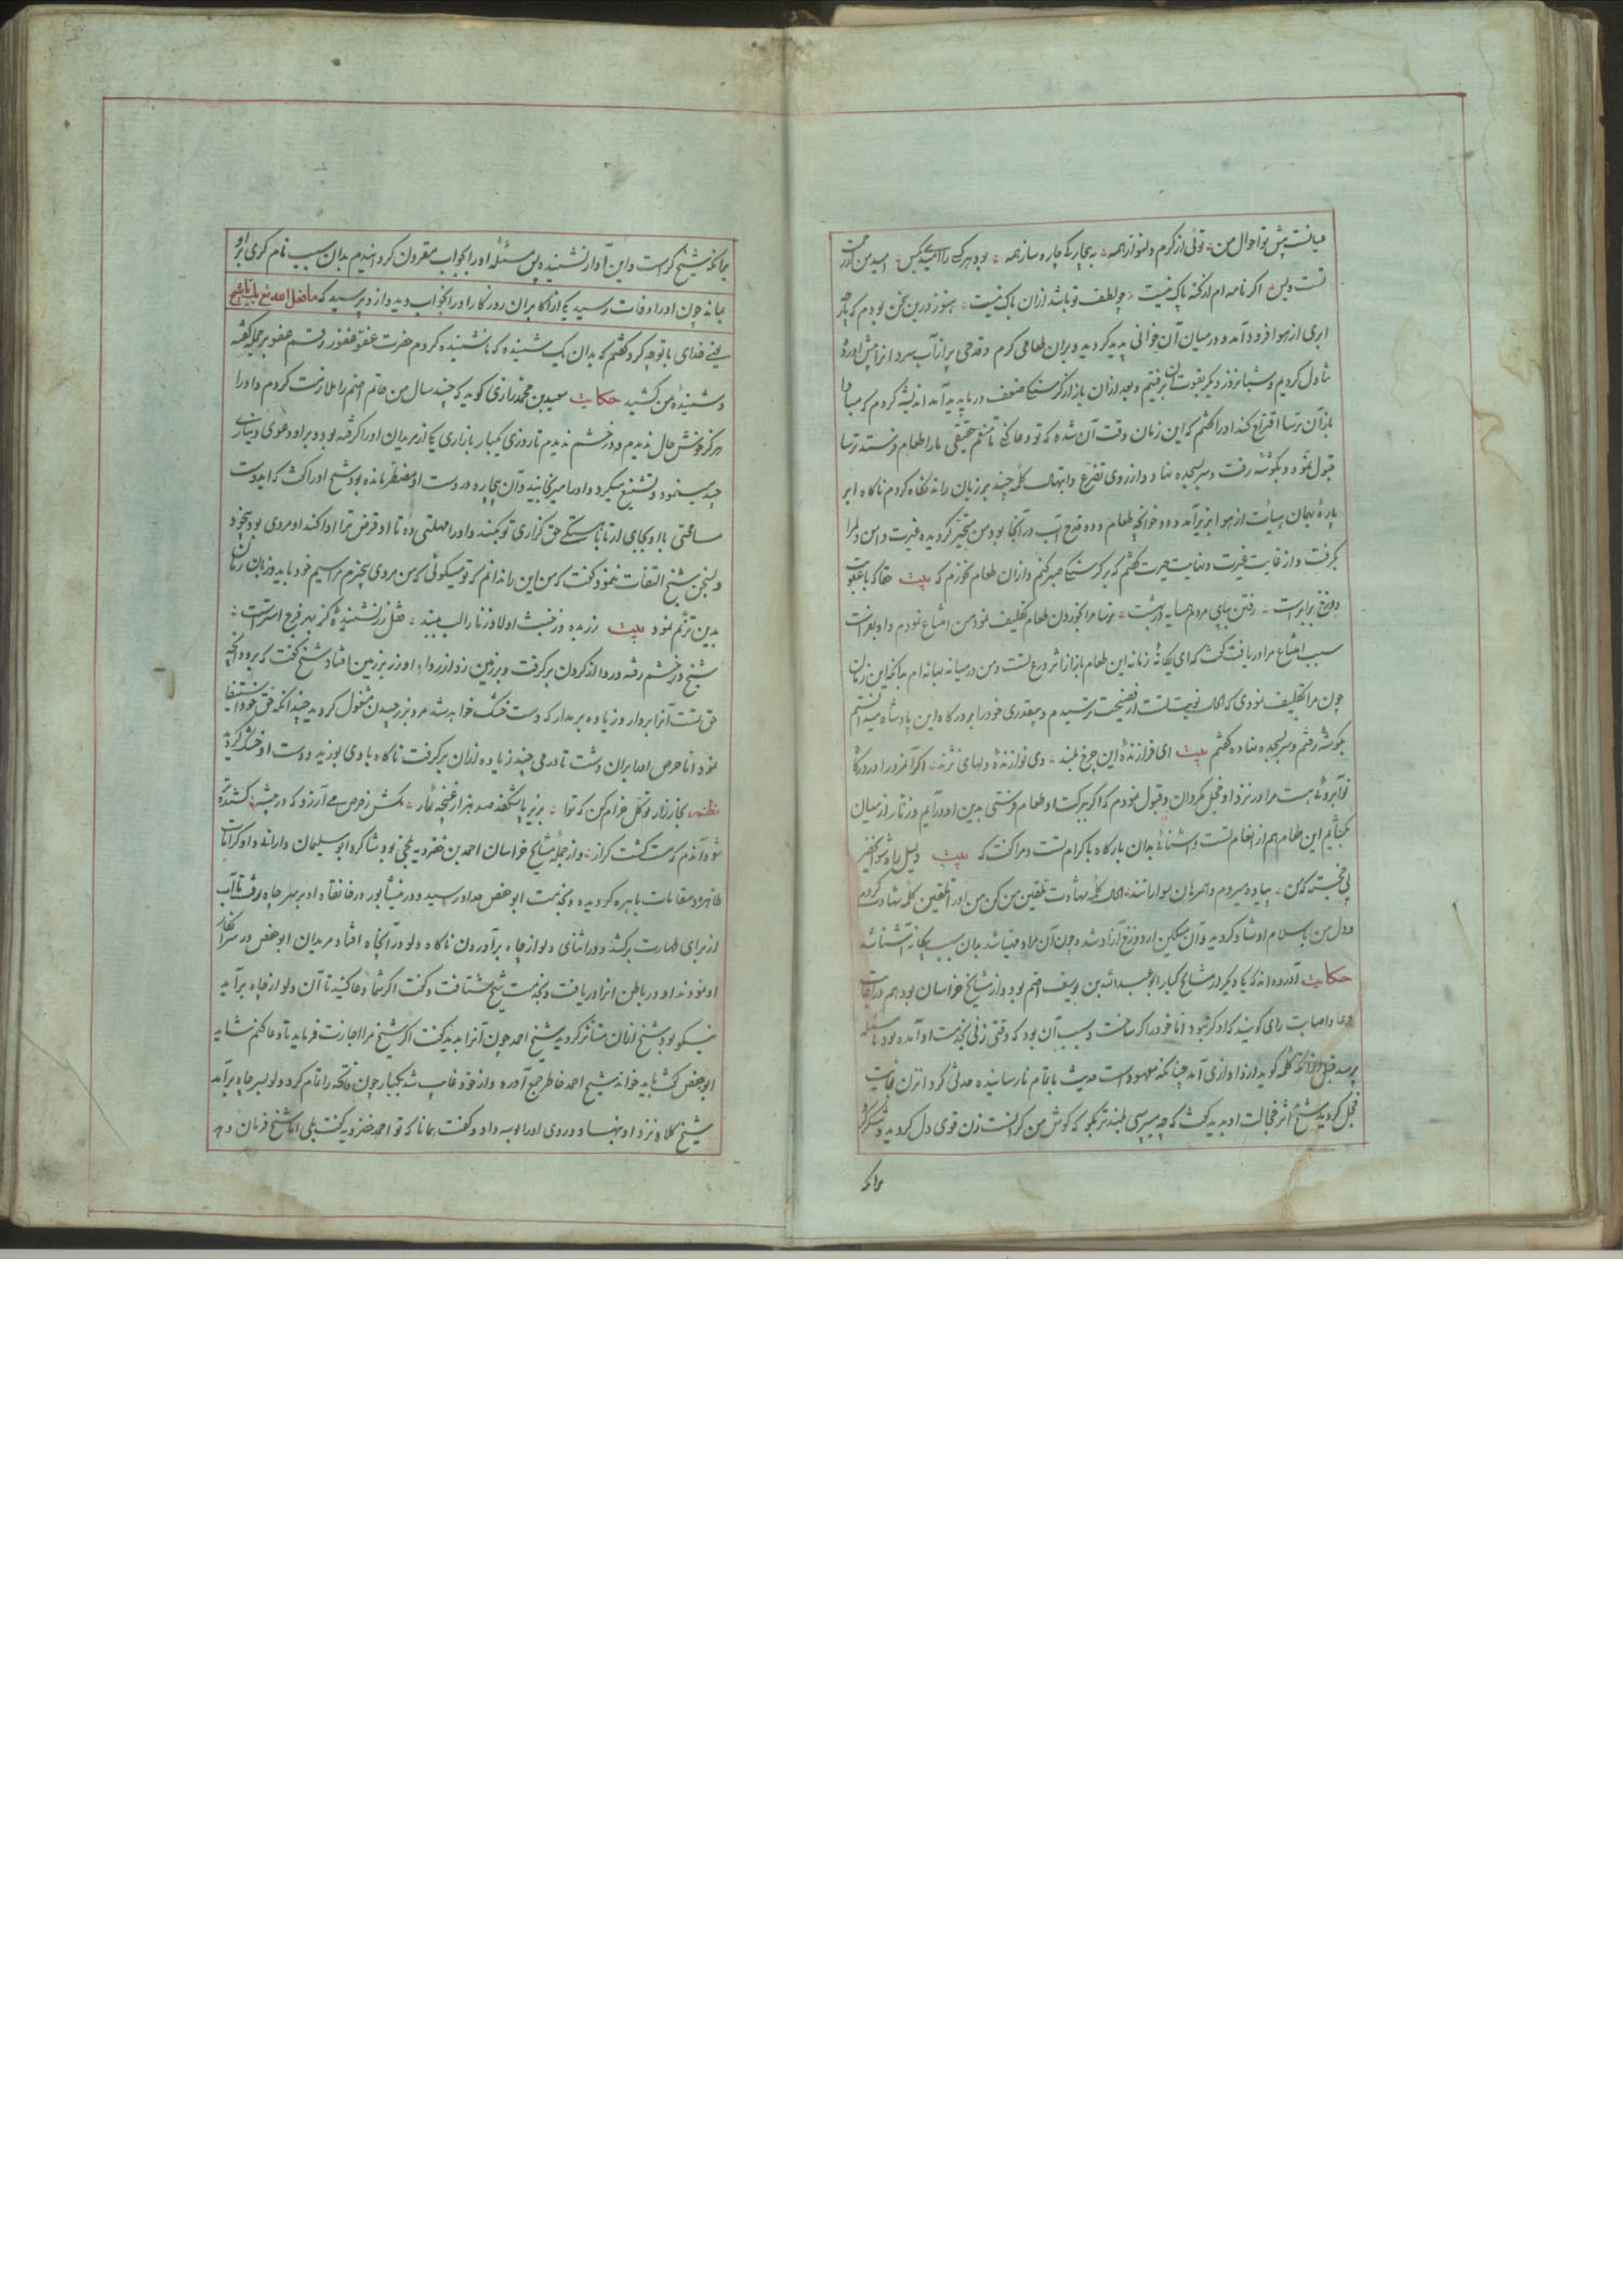 عیانست پیش تو احوال من توئی از کرم دلنواز همه به بیچارکی چاره ساز همه بود هرکسی را امید بکس امید من از رحمت
تست و بس اکر نامه ام از کنه پاک نیست چو لطف تو باشد ازان باک نیست هنوز درین سخن بودم که پاره
ابری از هوا فرود آمد و در میان آن خوانی پدید کردید و بران طعامی کرم و قدحی پر از آب سرد انرا پیش آورده
تناول کردیم و شبانروز دیکر بقوت آن برفتیم و بعد ازان باز از کرسنکی ضعف در ما پدید آمد اندیشه کردم که مبادا
باز آن ترسا اقتراح کند اورا کفتم که این زمان وقت آن شده که تو دعا کنی تا منعم حقیقی مارا طعام فرستد ترسا
قبول نمود و بکوشه رفت و سر بسجده نهاد و از روی تضرع و ابتهال کلمه چند بر زبان راند نکاه کردم ناکاه ابر
پاره بهمان هیأت از هوا بزیر آمد و دو خوانچه طعام و دو قدح آب در آنجا بود من متحیر کردیده غیرت دامن دلمرا
بکرفت و از غایت غیرت و نهایت حیرت کفتم که بر کرسنکی صبر کنم و ازان طعام نخورم که بیت حقا که با عقوبت
دوزخ برابرست رفتن بپای مردی همسایه در بهشت ترسا مرا بخوردن طعام تکلیف نمود من امتناع نمودم و او بفراست
سبب امتناع مرا دریافت کفت که ای یکانهٔ زمانه این طعام باز از اثر ورع تست و من در میانه بهانه ام بدانکه این زمان
چون مرا تکلیف نمودی که الحال نوبت تست از فضیحت ترسیدم و بیقدری خودرا بر درکاه این پادشاه میدانستم
بکوشه رفتم و سر بسجده نهاده کفتم بیت ای فرازندهٔ این چرخ بلند وی نوازندهٔ دلهای نژند اکر آنمرد را در درکاه
تو آبروئی هست مرا در نزد او خجل مکردان و قبول نمودم که اکر ببرکت او طعام فرستی بدین او در آیم و زنار از میان
بکشایم این طعام هم از انعام تست و آشنائی بدان بارکاه باکرام تست و مرا کفت که بیت دلیل راه شو ای خضر
پی خجسته که من پیاده میروم و همرهان سوارانند الحال کلمه شهادت تلقین من کن من اورا تلقین کلمه شهادت کردم
و دل من باسلام او شاد کردید و آن مسکین از دوزخ آزاد شد و چون آن مراد مهیا شد بدان سبب بیکانه آشنا شد
حکایت آورده اند که یکی دیکر از مشایخ کبار ابو عبد الله بن یوسف اصم بود و از مشایخ خراسان بود هم در اجابت
دعا و اصابت رای کویند که او کر نبود اما خودرا کر ساخت و سبب آن بود که وقتی زنی بخدمت او آمده بود تا مسئله
پرسد قبل ازانکه کلمه کوید ازو آوازی آمد چنانکه معهودست حدیث باتمام نارسانیده حدثی کرد انزن بغایت
خجل کردید شیخ اثر خجالت او بدید کفت که چه میپرسی بلندتر بکو که کوش من کرانست زن قوی دل کردید و شکر کرد
برانکه
برانکه شیخ کرست و این آواز نشنیده پس مسئله اورا بجواب مقرون کردانیدم بدان سبب نام کری بر او
بماند چون اورا وفات رسید یکی از اکابران روزکار اورا بخواب دید و ازو پرسید که ما فعل الله بک یا شیخ
یعنی خدای با تو چه کرد کفتم که بدان یک شنیده که ناشنیده کردم حضرت عفو غفور رقم عفو بر جمله کفته
و شنیدهٔ من کشید حکایت سعید بن محمد رازی کوید که چند سال من حاتم اصم را ملازمت کردم و اورا
هرکز خوش حال ندیدم و در خشم ندیدم تا روزی یکبار بازاری یکی از مریدان اورا کرفته بود و بر او دعوی دیناری
چند مینمود و تشنیع میکرد و اورا میرنجانید و آن بیچاره در دست او مضطر مانده بود شیخ اورا کفت که ایدوست
ساعتی با او بجای آر تا بآهستکی حق کزاری تو بکند و اورا مهلتی ده تا او قرض ترا ادا کند او مردی بود بیخرد
و بسخن شیخ التفات ننمود کفت که من این را ندانم که تو میکوئی که من مردی بیخبرم مرا سیم خود باید و زبان زمان
بدین ترنم نمود بیت زر بده و ز خبث اولاد زنا را لب ببند
شیخ در خشم رفته و ردا از کردن بر کرفت و بر زمین زد از رداء او زر بر زمین افتاد شیخ کفت که برو و آنچه
حق تست آنرا بردار و زیاده بر مدار که دست خشک خواهد شد مرد بزر چیدن مشغول کردید چندانکه حق خود استیفا
نمود اما حرص اورا بران داشت تا درمی چند زیاده ازان بر کرفت ناکاه بادی بوزید و دست او خشک کردید
نظم بخارزار توکل خرام کن که ترا بزیر پا شکفد صد هزار غنچه بکار بکش ز حرص می آرزو که در
شود آندم که مست کشت کراز و از جملهٔ مشایخ خراسان احمد بن خضرویه بلخی بود شاکرد ابو سلیمان داراند و او کرامات
ظاهره و مقامات باهره کردیده و بخدمت ابو حفص حداد رسید و در نیشابور در خانقاه او بر سر چاه رفت تا آب
از برای طهارت برکشد و در اثنای دلو از چاه برآوردن ناکاه دلو در آنچاه افتاد مریدان ابو حفص در سر انکار
او نمودند او در باطن انرا دریافت و بخدمت شیخ شتافت و کفت اکر شما دعا کنید تا آن دلو از چاه برآید
نیکو بود شیخ ازان متأثر کردید شیخ احمد چون آنرا بدید کفت اکر شیخ مرا اجازت فرماید تا دعا کنم شاید
ابو حفص کفت باید خواند شیخ احمد خاطر جمع آورده و از خود غایب شد یکبار چون فاتحه را تمام کرد دلو بسر چاه برآمد
شیخ کلاه نزد او نهاد و در روی او را بوسه داد و کفت همانا که تو احمد خضرویه کفت بلی اما شیخ فرمان دهد